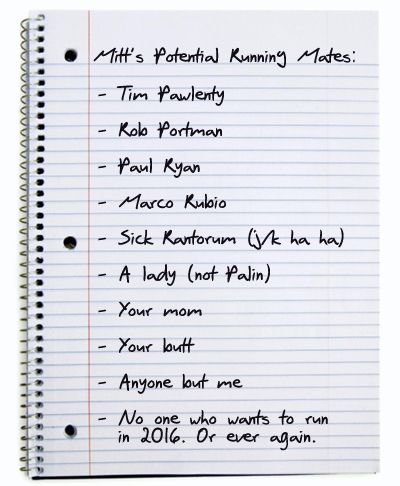 Mitt's Potential Running Mates:
- Tim Pawlenty
- Rob Portman
- Paul Ryan
- Marco Rubio
- Sick Rantorum (j/k ha ha)
- A lady (not Palin)
- Your mom
- Your butt
- Anyone but me
- No one who wants to run
in 2016. Or ever again.